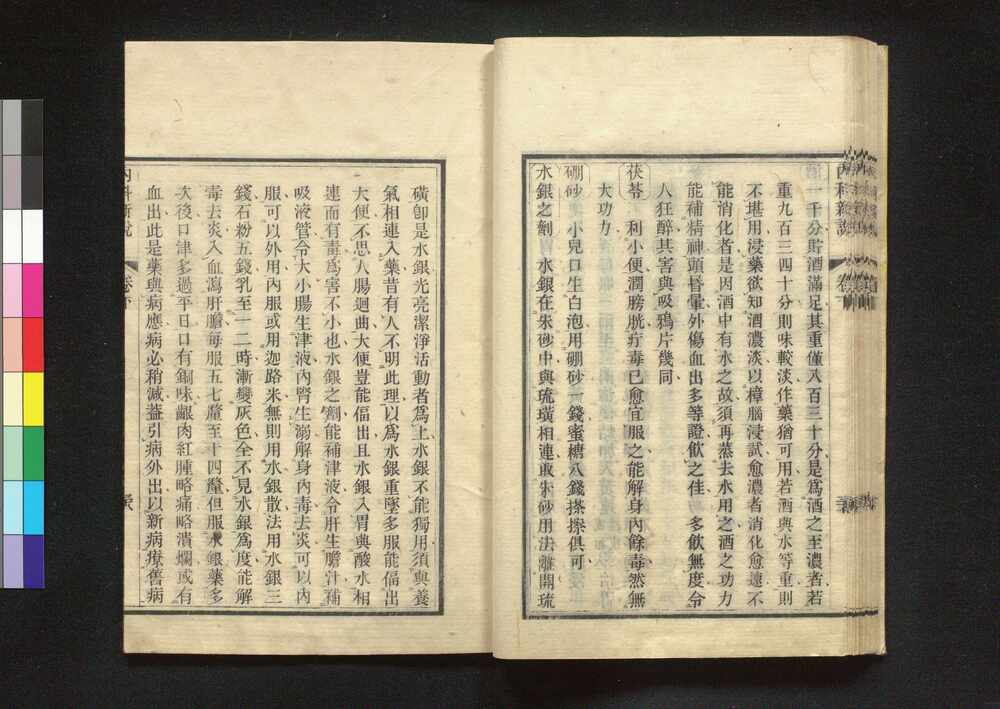 內科新說
卷下
酒一千分貯酒滿足其重僅八百三十分是爲酒之至濃者若
重九百三四十分則味較淡作藥猶可用若酒與水等重則
不堪用浸藥欲知酒濃淡以樟腦浸試愈濃者消化愈速不
能消化者是因酒中有水之故須再蒸去水用之酒之功力
能補精神頭昏暈外傷血出多等證飲之佳 多飲無度令
人狂醉其害與吸鴉片幾同
茯苓 利小便潤膀胱疔毒已愈宜服之能解身內餘毒然無
大功力
硼砂 小兒口生白泡用硼砂一錢蜜糖八錢搽擦俱可
水銀之劑 水銀在朱砂中與琉璜相連取朱砂用法離開琉
磺卽是水銀光亮潔淨活動者爲上水銀不能獨用須與養
氣相連入藥昔有人不明此理以爲水銀重墜多服能偪出
大便不思人腸迴曲大便豈能偪出且水銀入胃與酸水相
連而有毒爲害不小也水銀之劑能補津液令肝生膽汁補
吸液管令大小腸生津液內腎生溺解身內毒去炎可以內
服可以外用內服或用迦路米無則用水銀散法用水銀三
錢石粉五錢乳至一二時漸變灰色全不見水銀爲度能解
毒去炎入血瀉肝膽每服五七釐至十四釐但服水銀藥多
次後口津多過平日口有銅味齦肉紅腫略痛略潰爛或有
血出此是藥與病應病必稍減蓋引病外出以新病療舊病
內科新說
卷下